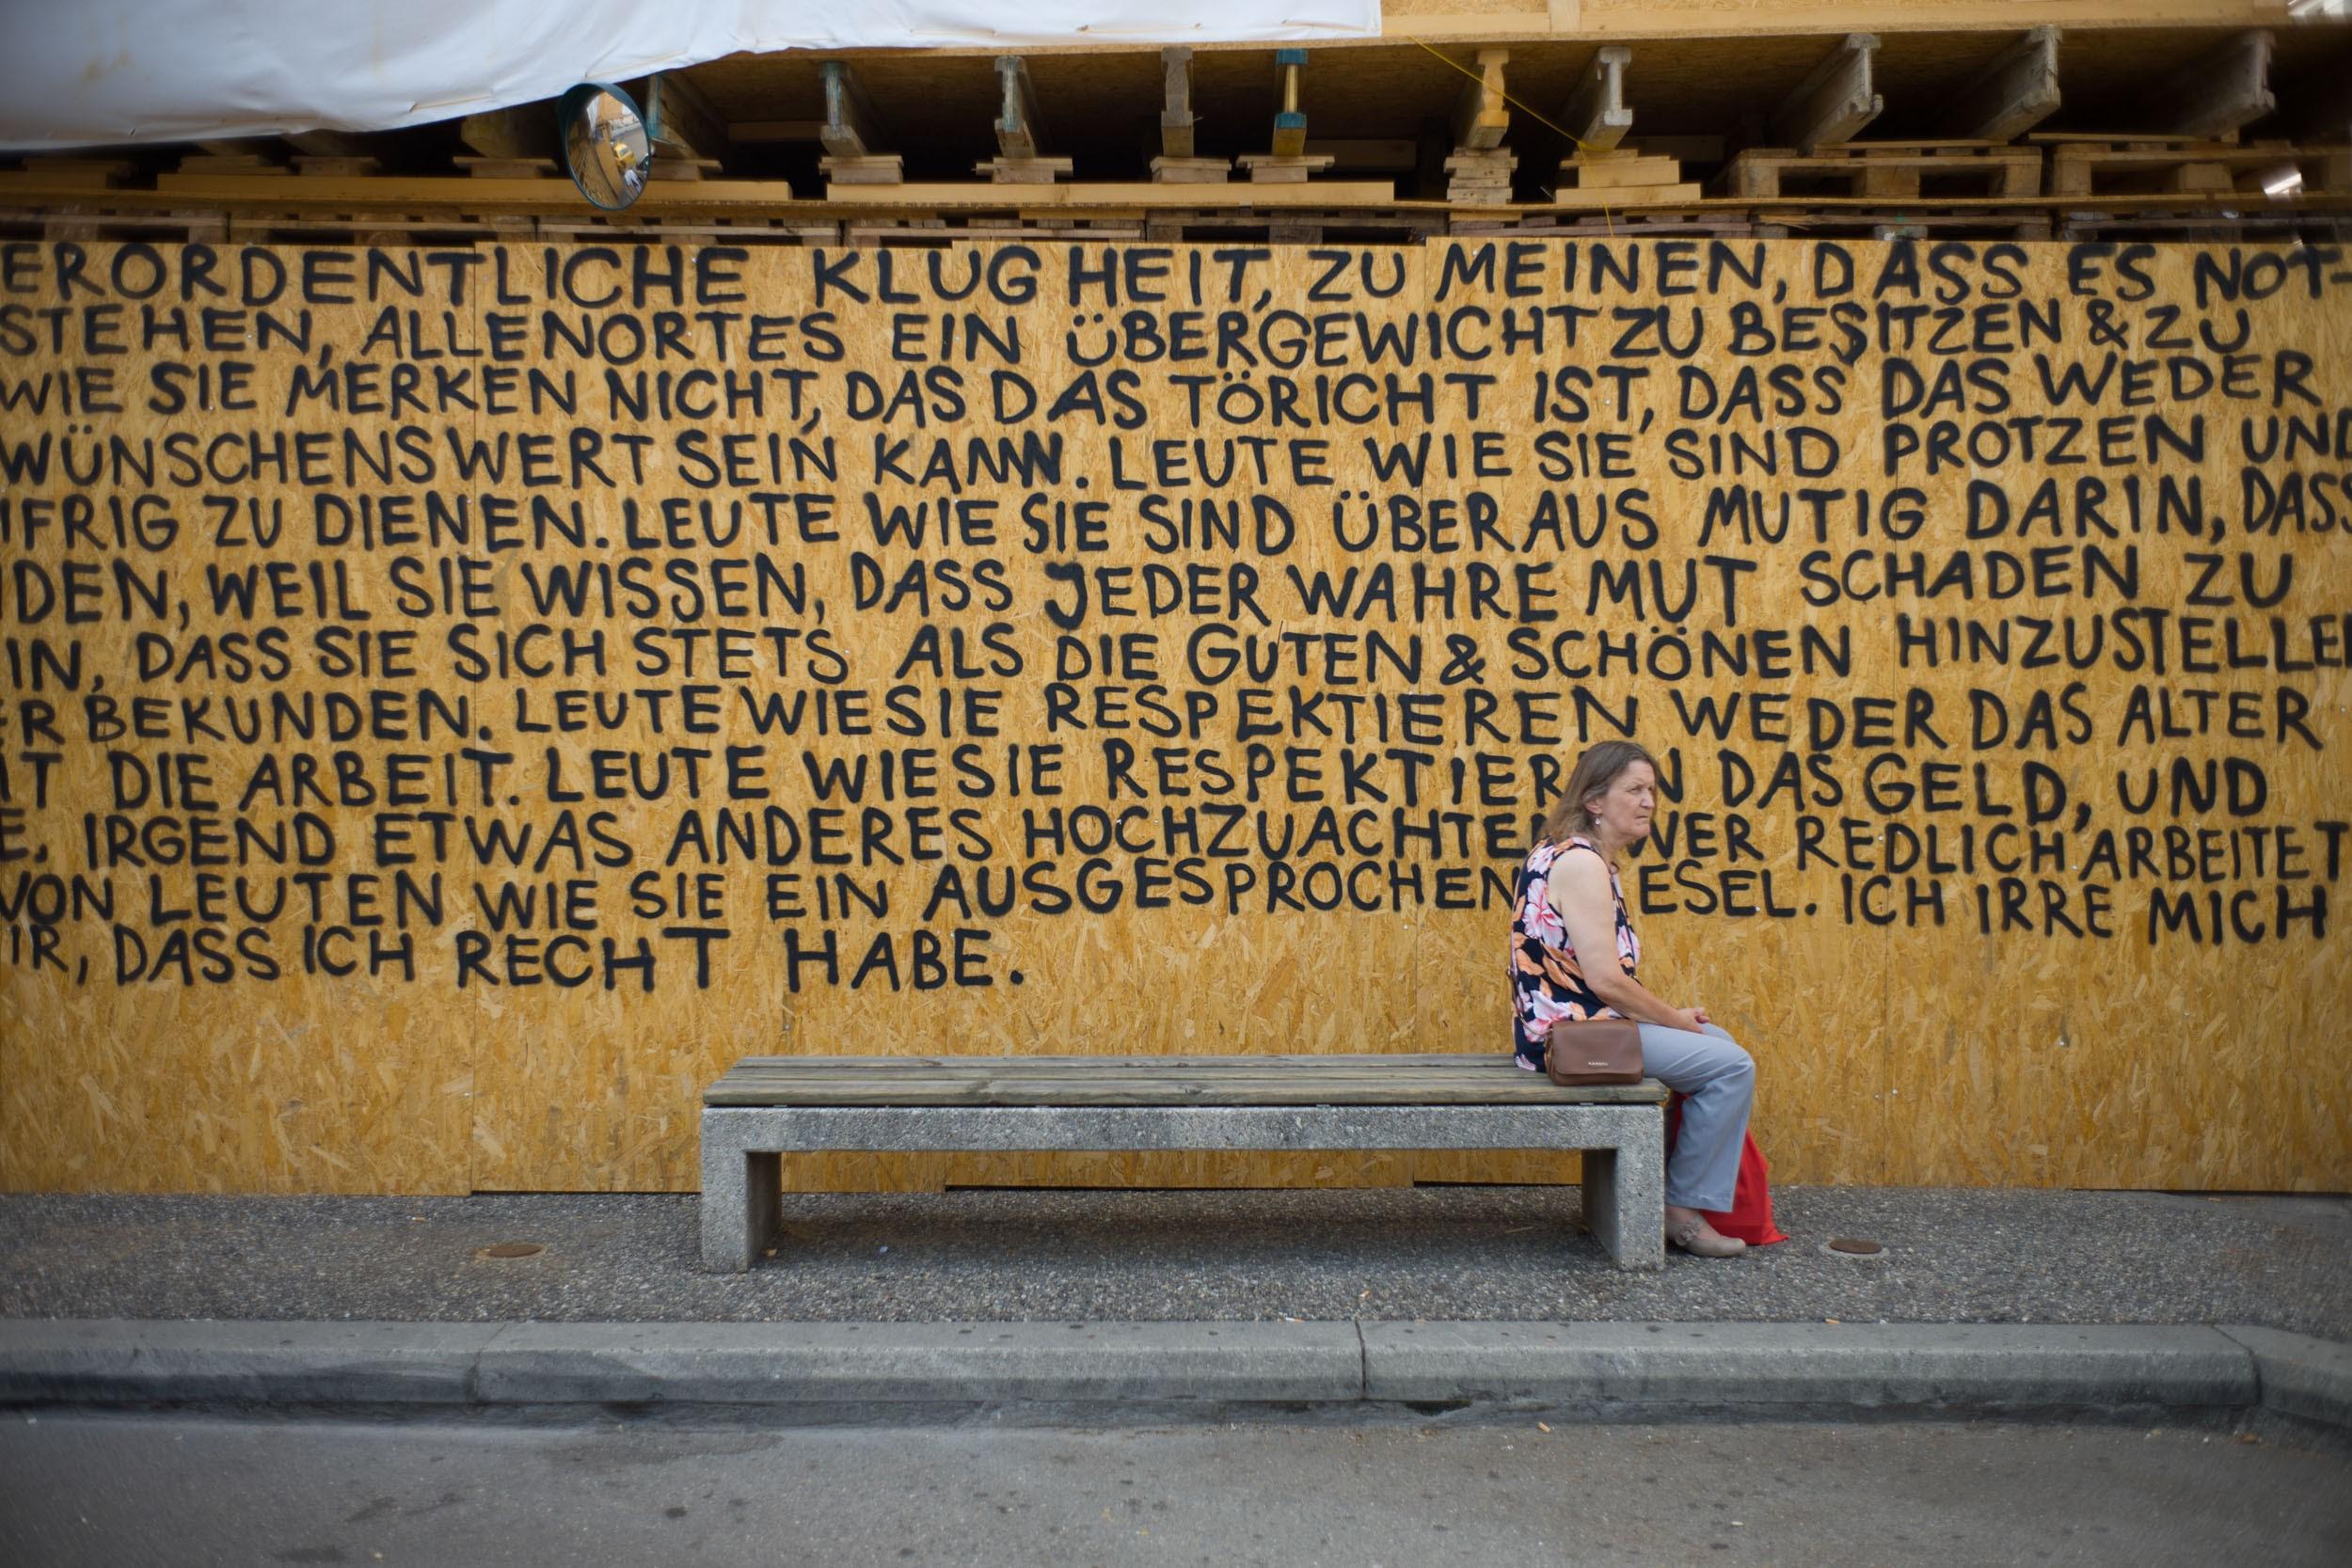 ERORDENTLICHE KLUGHEIT, ZU MEINEN, DASS ES NOT-
STEHEN, ALLENORTES EIN ÜBERGEWICHT ZU BESITZEN & ZU
WIE SIE MERKEN NICHT, DAS DAS TÖRICHT IST, DASS DAS WEDER
WÜNSCHENSWERT SEIN KANN. LEUTE WIE SIE SIND PROTZEN UND
IFRIG ZU DIENEN. LEUTE WIE SIE SIND ÜBERAUS MUTIG DARIN, DASS
DEN, WEIL SIE WISSEN, DASS JEDER WAHRE MUT SCHADEN ZU
IN, DASS SIE SICH STETS ALS DIE GUTEN & SCHÖNEN HINZUSTELLE
R BEKUNDEN. LEUTE WIE SIE RESPEKTIEREN WEDER DAS ALTER
T DIE ARBEIT. LEUTE WIE SIE RESPEKTIER N DAS GELD, UND
E. IRGEND ETWAS ANDERES HOCHZUACHTE WER REDLICH ARBEITET
VON LEUTEN WIE SIE EIN AUSGESPROCHEN ESEL. ICH IRRE MICH
IR, DASS ICH RECHT HABE.